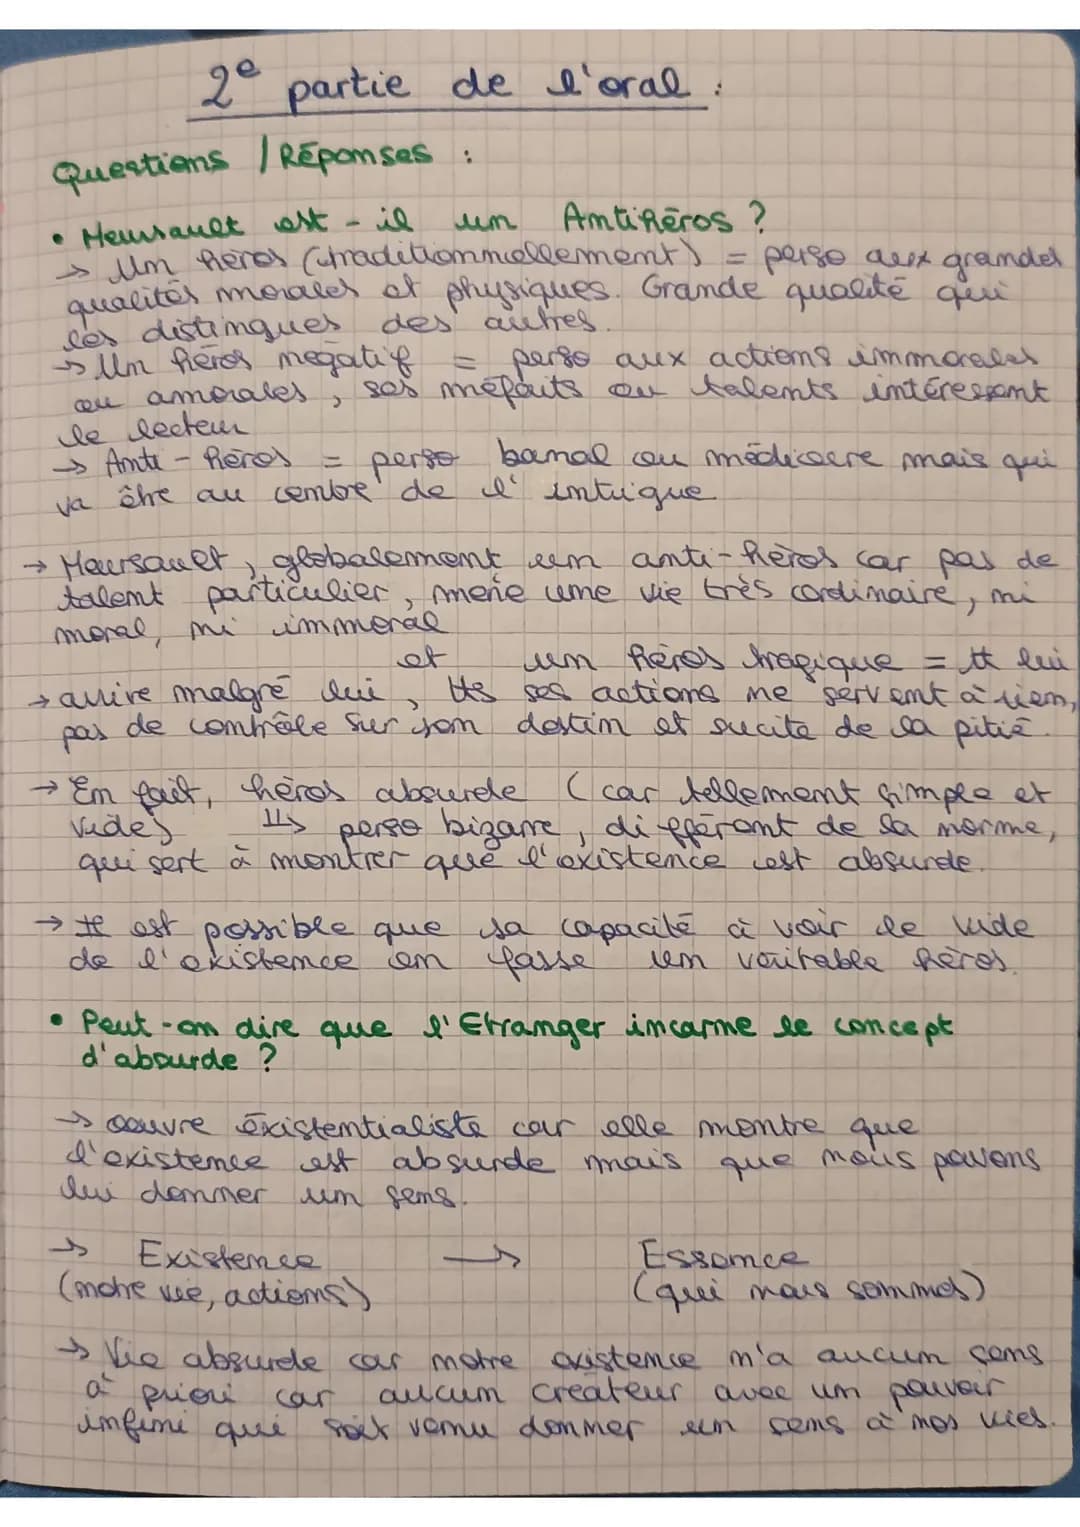 2e partie de l'oral :
Questions / Réponses :
• Meursault est-il un Antihéros ?
→ Un héros (traditionnellement) = perso aux grandes
qualités morales et physiques. Grande qualité qui
les distingues des autres.
→ Un héros négatif = perso aux actions immorales
ou amorales, ses méfaits ou talents intéressent
le lecteur
→ Anti-héros = perso banal ou médiocre mais qui
va être au centre de l'intrigue
→ Meursault, globalement un anti-héros car pas de
talent particulier, mène une vie très ordinaire, ni
moral, ni immoral
et un héros tragique = tt lui
→ arrive malgré lui, tts ses actions ne servent à rien,
pas de contrôle sur son destin et sucite de la pitié.
→ En fait, héros absurde (car tellement simple et
vide) ⇒ perso bizarre, différent de la norme,
qui sert à montrer que l'existence est absurde.
→ Il est possible que sa capacité à voir le vide
de l'existence en fasse un véritable héros.
• Peut-on dire que l'Etranger incarne le concept
d'absurde ?
→ oeuvre éxistentialiste car elle montre que
l'existence est absurde mais que nous pouvons
lui donner un sens.
→ Existence → Essence
(notre vie, actions) (qui nous sommes)
→ Vie absurde car notre existence n'a aucun sens
à priori car aucun créateur avec un pouvoir
infini qui soit venu donner un sens à nos vies.